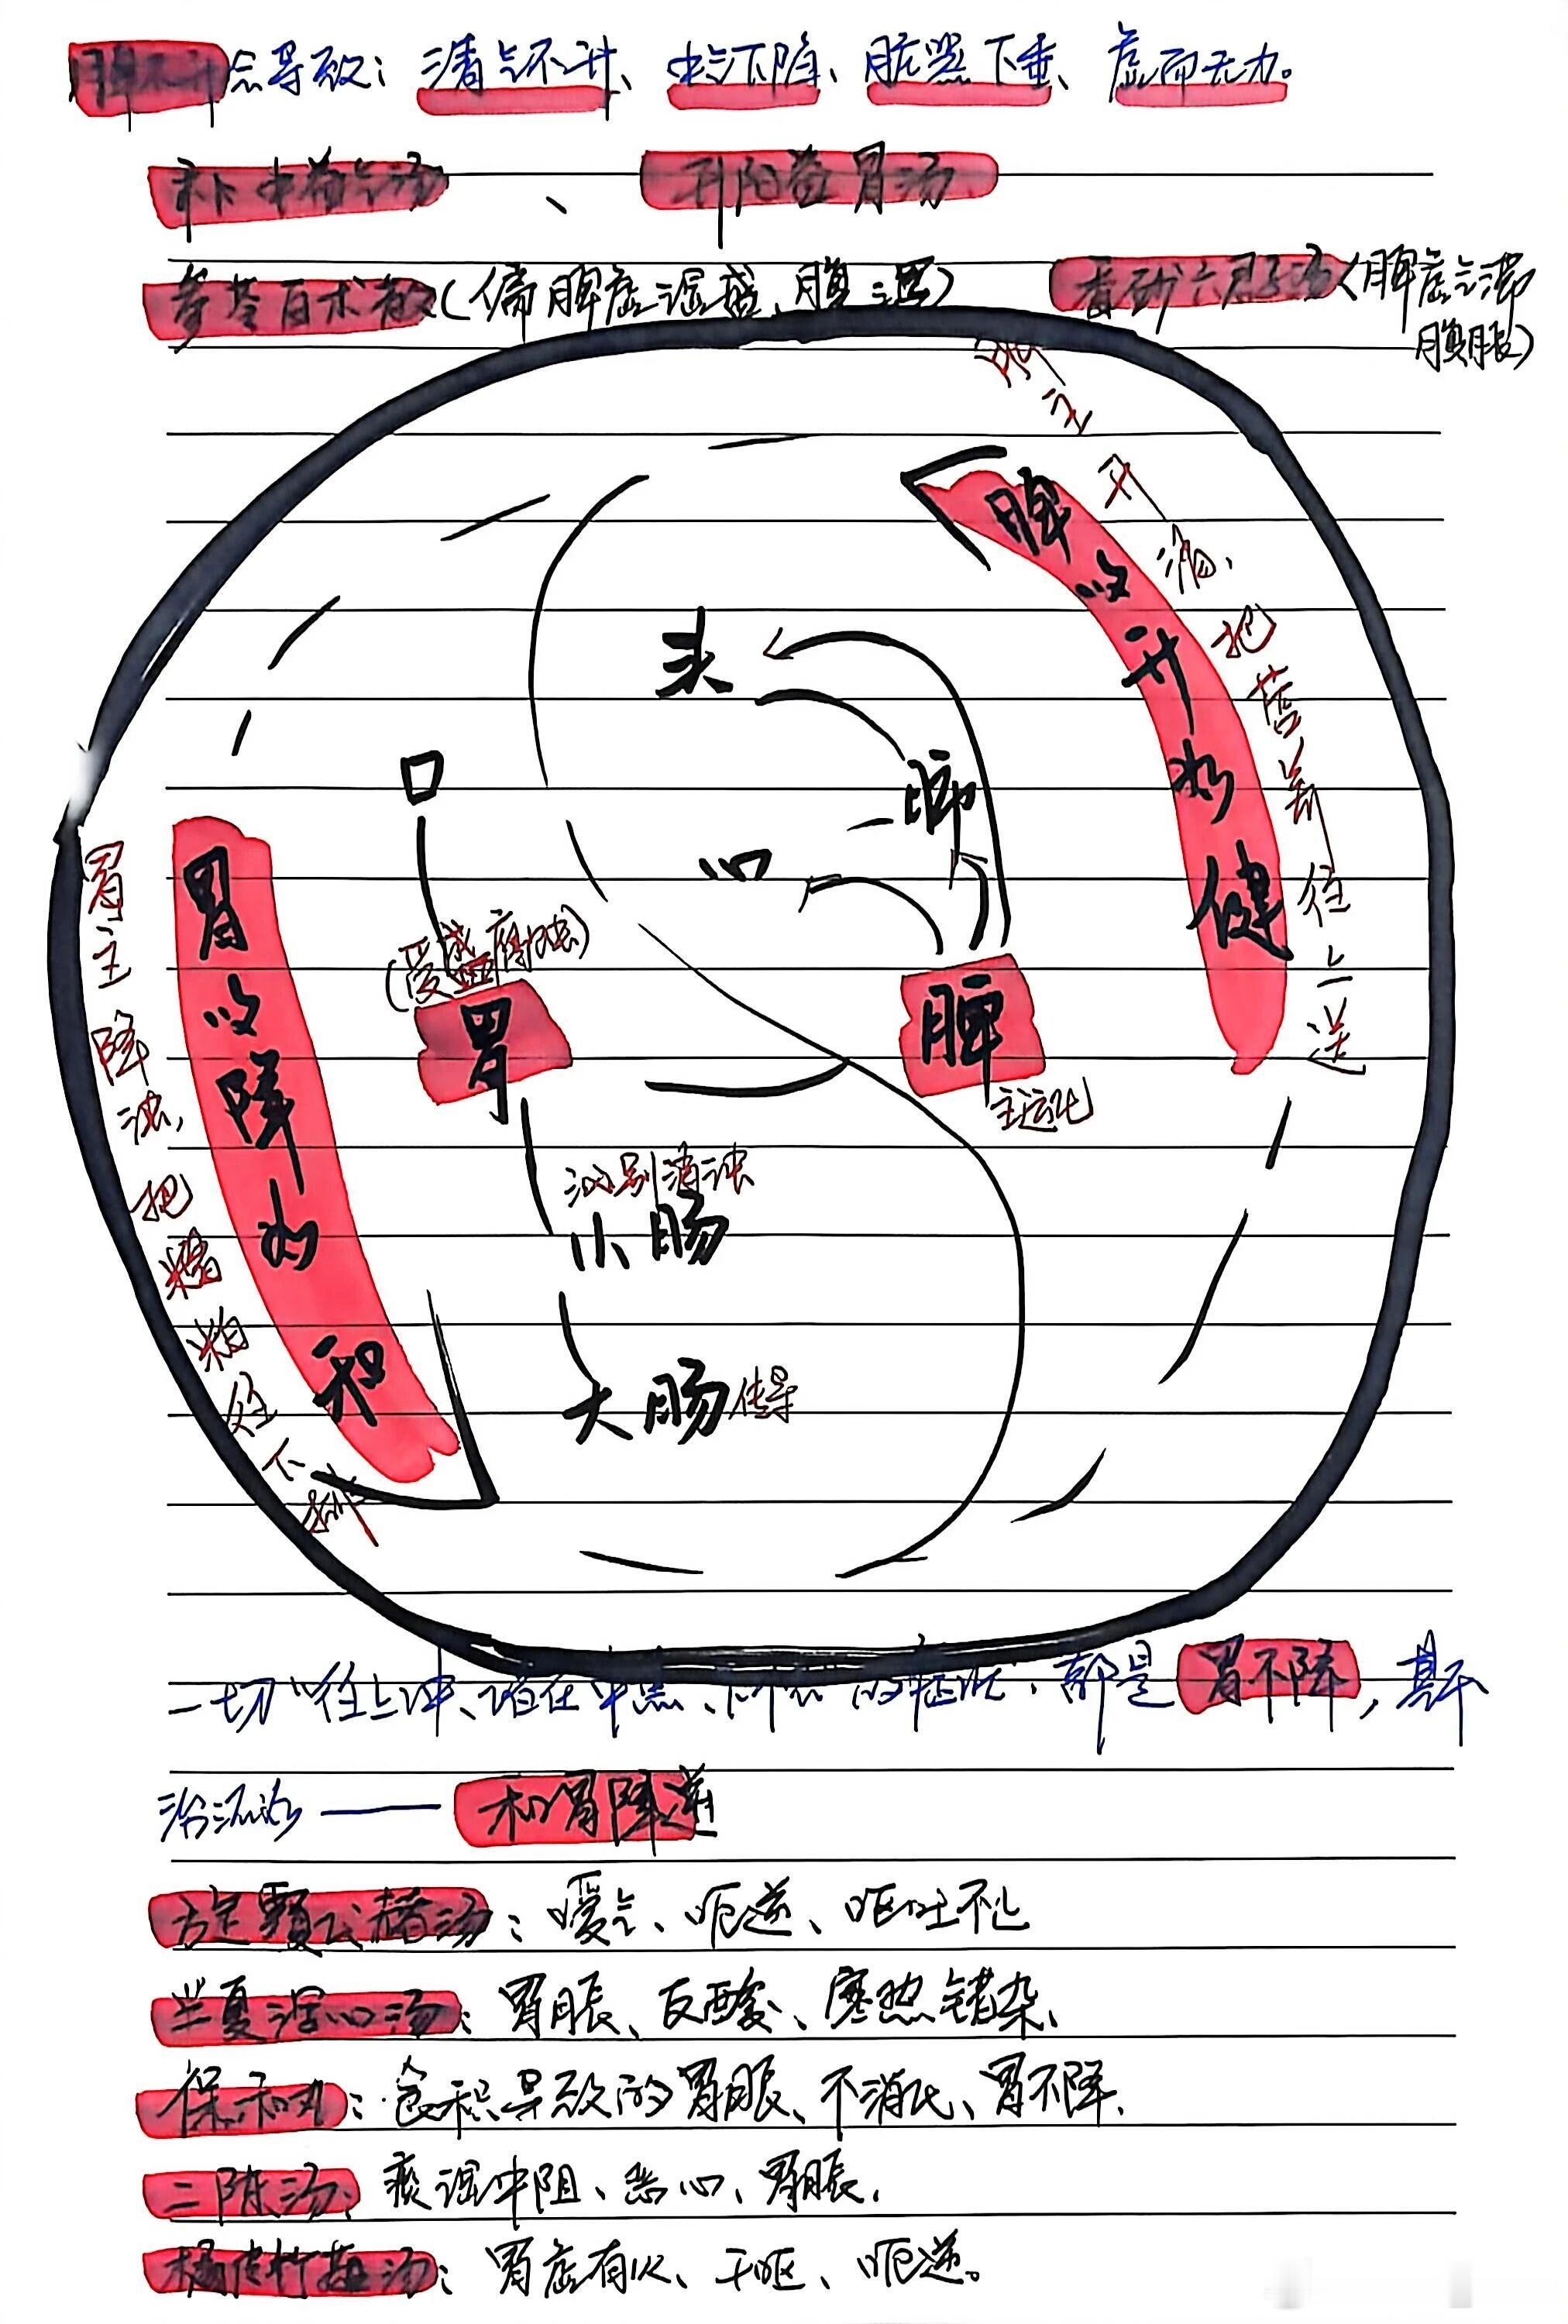 会导致：清气不升、中气下陷、脏器下垂、虚而无力。
补中益气汤、升阳益胃汤
参苓白术散(偏脾虚湿盛、腹泻) 香砂六君子汤(脾虚气滞
腹胀)
脾主升清、把营养往上送
脾以升为健
头
口
心
脾
主运化
(受盛腐熟)
胃
胃以降为和
胃主降浊，把糟粕往下排
泌别清浊
小肠
大肠 传导
一切"往上冲、堵在中焦、的症状，都是胃不降，基本
治法 —— 和胃降逆
旋覆代赭汤：嗳气、呃逆、呕吐不止
半夏泻心汤：胃胀、反酸、寒热错杂、
保和丸：食积导致的胃胀、不消化、胃不降、
二陈汤：痰湿中阻、恶心、胃胀、
橘皮竹茹汤：胃虚有火、干呕、呃逆。